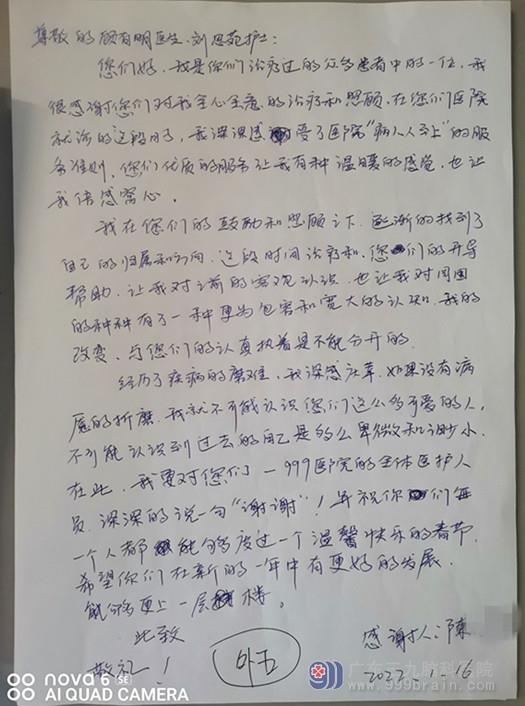 尊敬的顾有明医生、刘思苑护士:
您们好,我是你们治疗过的众多患者中的一位,我
很感谢您们对我全心全意的治疗和照顾,在您们医院
就诊的这段时,我深深感受了医院“病人人至上”的服
务准则,您们优质的服务让我有种温暖的感觉,也让
我倍感窝心。
我在您们的鼓励和照顾之下,逐渐的找到了
自己的归属和方向,这段时间治疗和,您们的开导
帮助,让我对之前的客观认识,也让我对周围
的种种有了一种更为包容和宽大的认知,我的
改变,与您们的认真执着是不能分开的.
经历了疾病的磨难,我深感庆幸,如果没有病
魔的折磨,我就不可能认识您们这么多可爱的人,
不可能认识到过去的自己是多么卑微和渺小
在此,我要对您们——999医院的全体医护人
员,深深的说一句“谢谢”!并祝你们每
一个人都能够度过一个温馨快乐的春节
希望你们在新的一年中有更好的发展,
能够更上一层楼。
此致
敬礼!
外五
感谢人:陳
2022.1.16
nova 6 SE
AI QUAD CAMERA
广东三九脑科医院
www.999brain.com